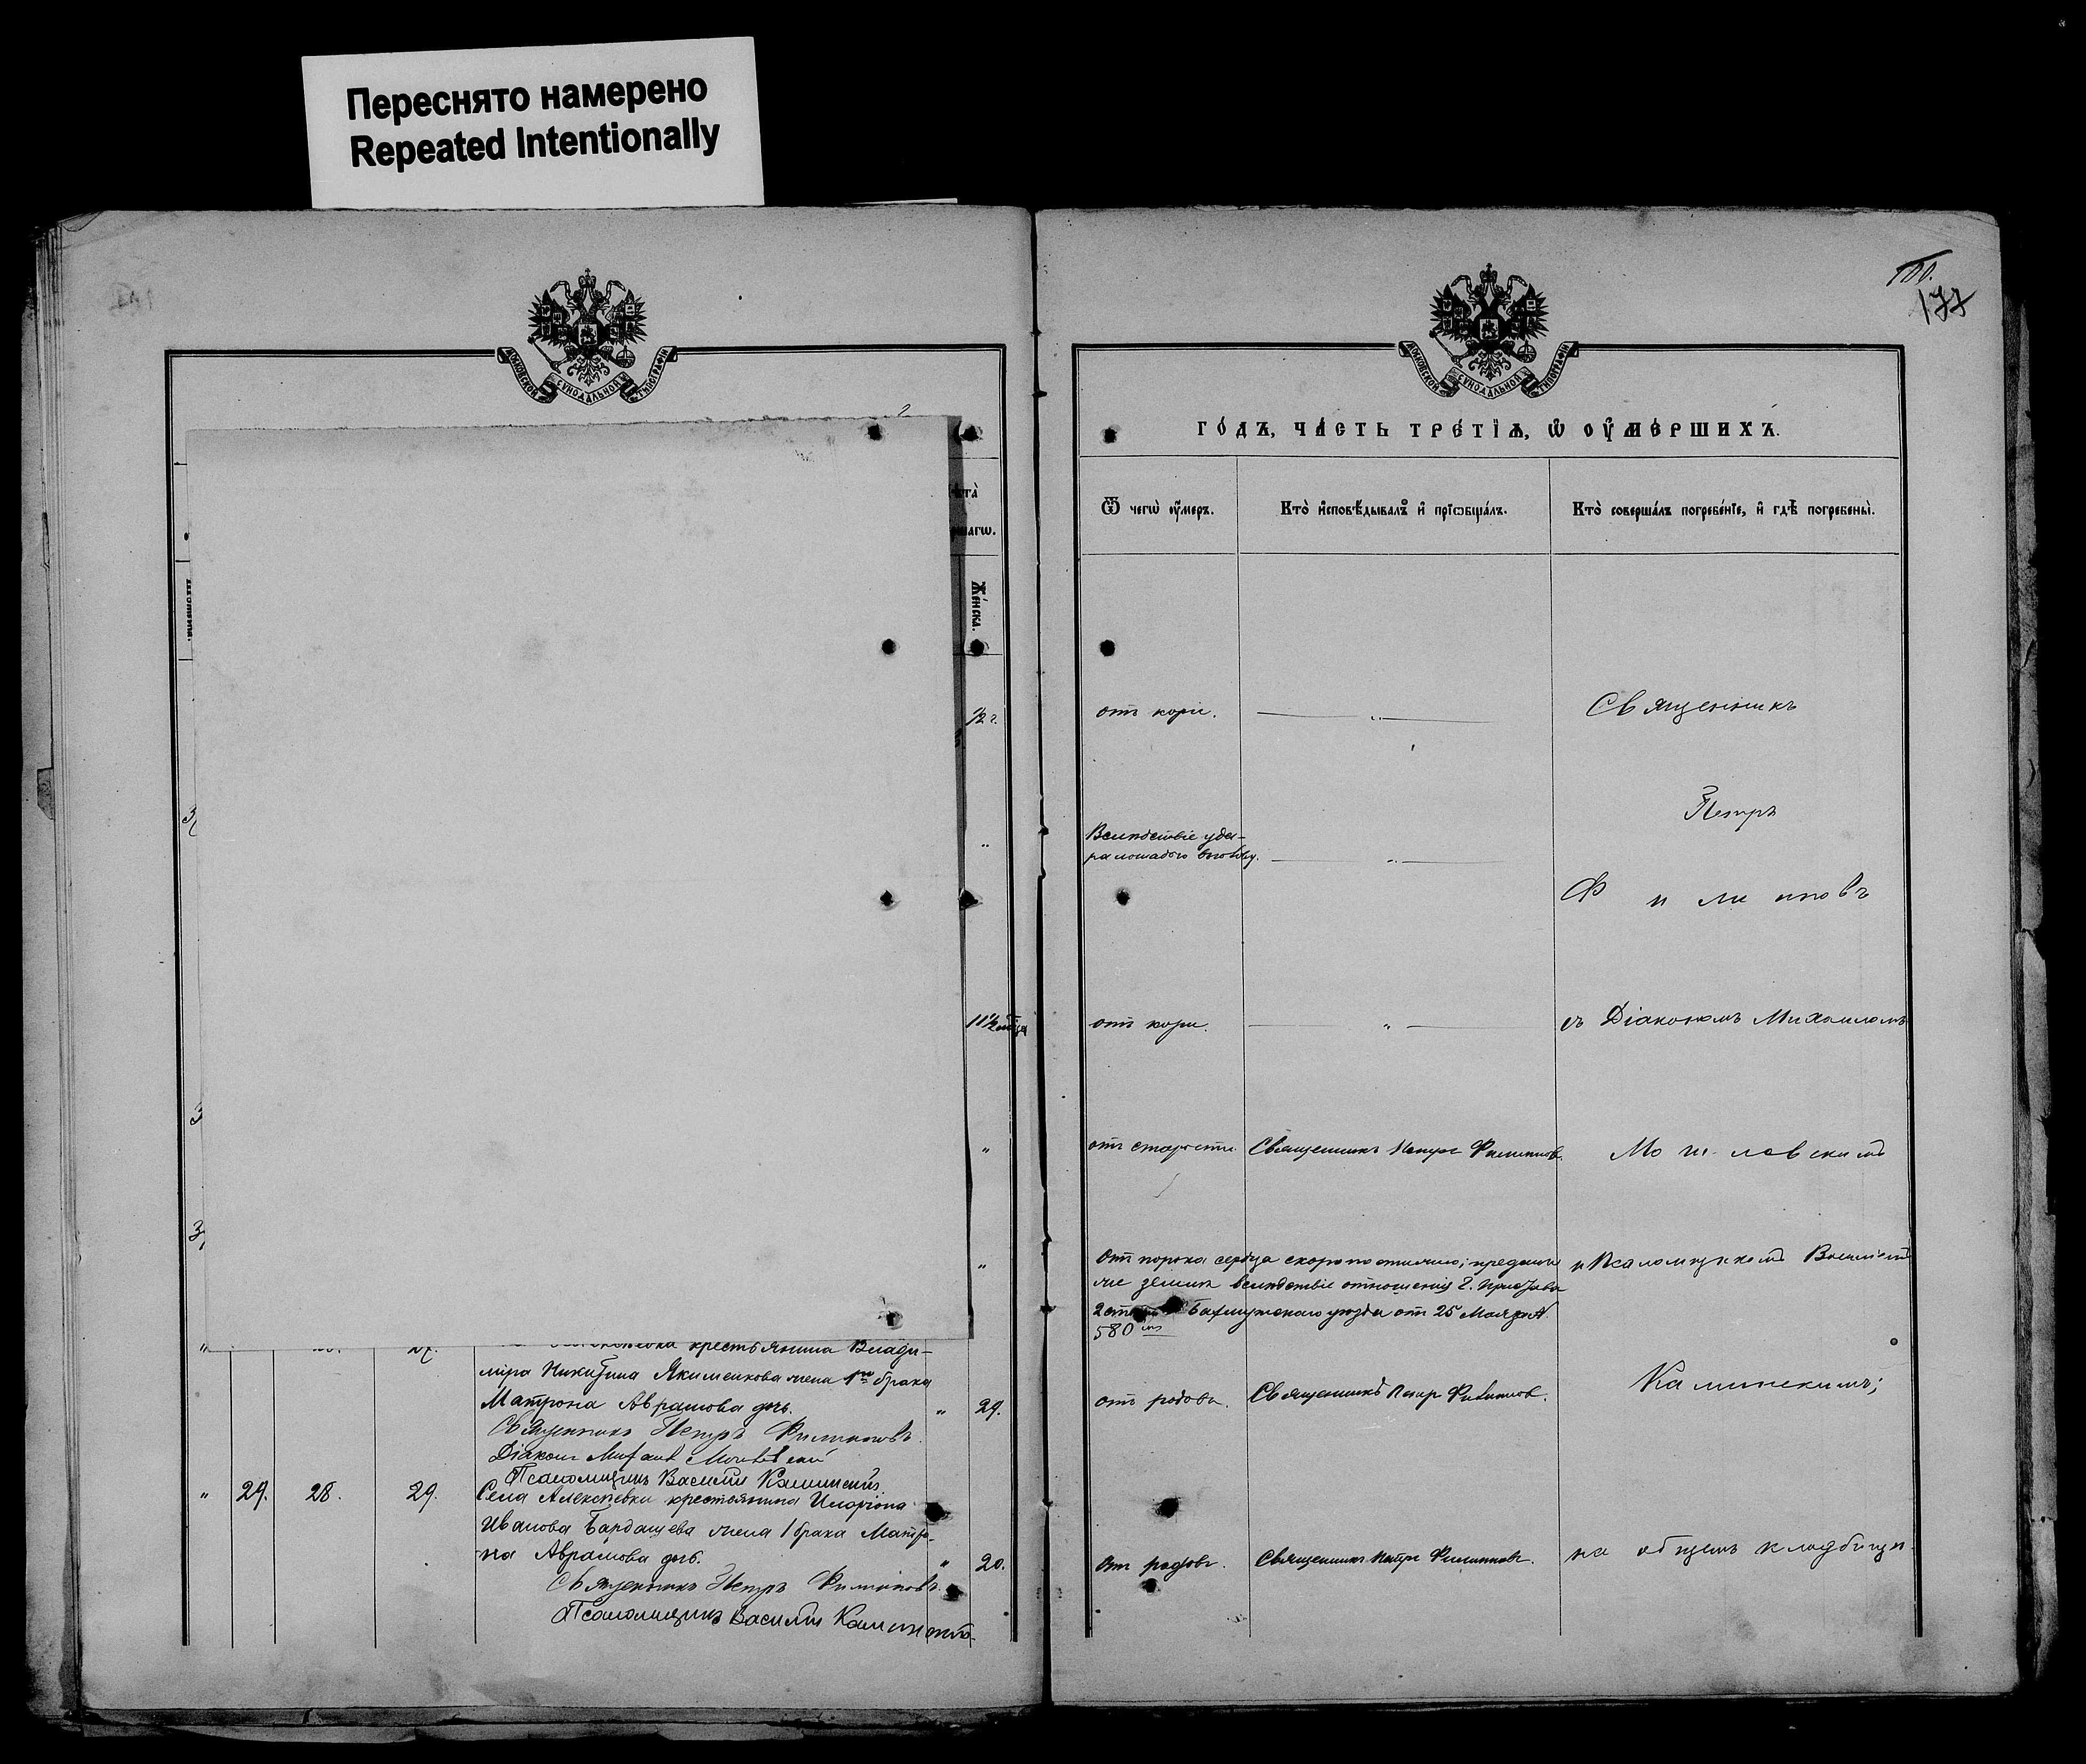 Переснято намерено
Repeated Intentionally
МОСКОВСКОЙ СѴНОДАЛЬНОЙ ТИПОГРАФІИ
Же́нска.
1/2 г.
"
11 1/2
"
"
крестьянина Влади-
міра Никитина Якименкова жена 1го брака
Матрона Аврамова дочь. " 29.
Священникъ Петръ Филиповъ.
Діаконъ
Псаломщикъ Василій Калинскій.
" 29. 28. 29. Села Алексѣевки крестьянина Иларіона
Иванова Бардашева жена 1 брака Матро-
на Аврамова дочь. " 20.
Священникъ Петръ Филиповъ.
Псаломщикъ Василій Калинскій.
177
МОСКОВСКОЙ СѴНОДАЛЬНОЙ ТИПОГРАФІИ
го́дъ, ча́сть тре́тїѧ, ѡ҆ оу҆ме́ршихъ.
Ѿ чегѡ̀ оу҆́меръ.
Кто̀ и҆сповѣ́дывалъ и҆ прїѡбща́лъ.
Кто̀ соверша́лъ погребе́нїе, и҆ гдѣ̀ погребены̀.
отъ кори. — " — Священникъ
Петръ
Вслѣдствіе уда-
ра лошадью въ голову. — " —
Ф и ли повъ
отъ кори. — " — съ Діакономъ Михаиломъ
отъ старости Священникъ Петръ Филиповъ.
Отъ порока сердца скоропостижно; преданъ
землѣ вслѣдствіе отношенія Г. Пристава
2 Бахмутскаго уѣзда отъ 25 Мая за №
580
и Псаломщикомъ Василіемъ
Калинскимъ;
отъ родовъ. Священникъ Петръ Филиповъ.
отъ родовъ. Священникъ Петръ Филиповъ. на общемъ кладбищѣ.